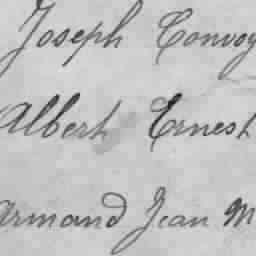 Joseph Convoy
Albert Ernest
Armand Jean M